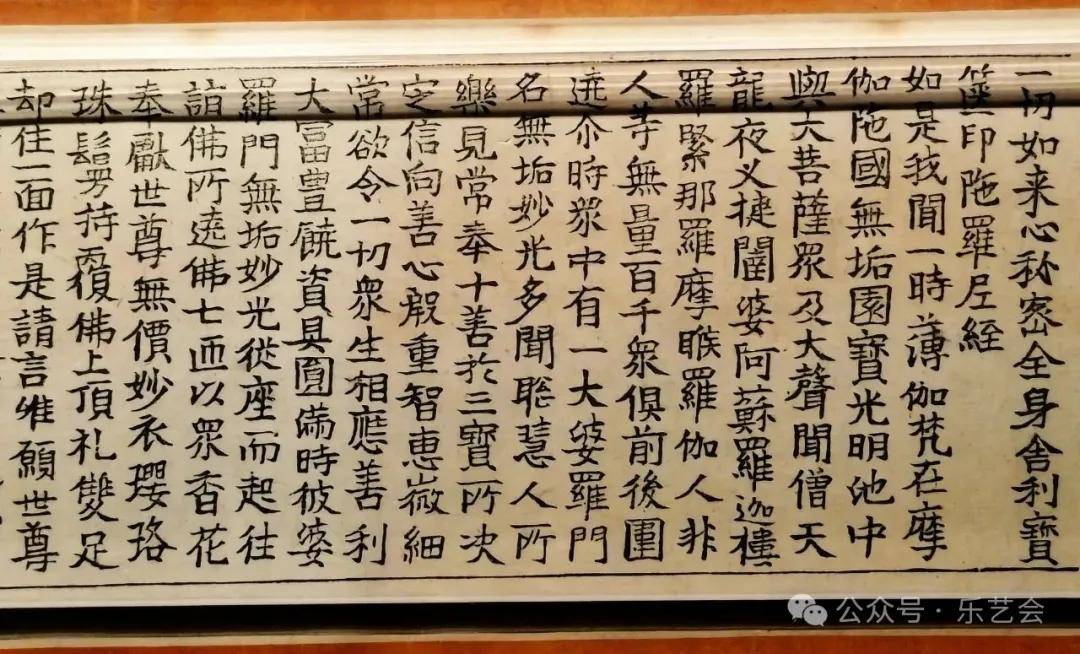 一切如来心秘密全身舍利寶
篋印陁羅尼經
如是我聞一時薄伽梵在摩
伽陁國無垢園寶光明池中
與大菩薩眾及大聲聞僧天
龍夜叉揵闥婆阿蘇羅迦樓
羅緊那羅摩睺羅伽人非
人等無量百千眾俱前後圍
遶尒時眾中有一大婆羅門
名無垢妙光多聞聡慧人所
樂見常奉十善於三寶所决
定信向善心殷重智恵微細
常欲令一切眾生相應善利
大富豊饒資具圓滿時彼婆
羅門無垢妙光從座而起往
詣佛所遶佛七匝以眾香花
奉獻世尊無價妙衣瓔珞
珠鬘持覆佛上頂礼雙足
却住一面作是請言唯願世尊
公众号·乐艺会